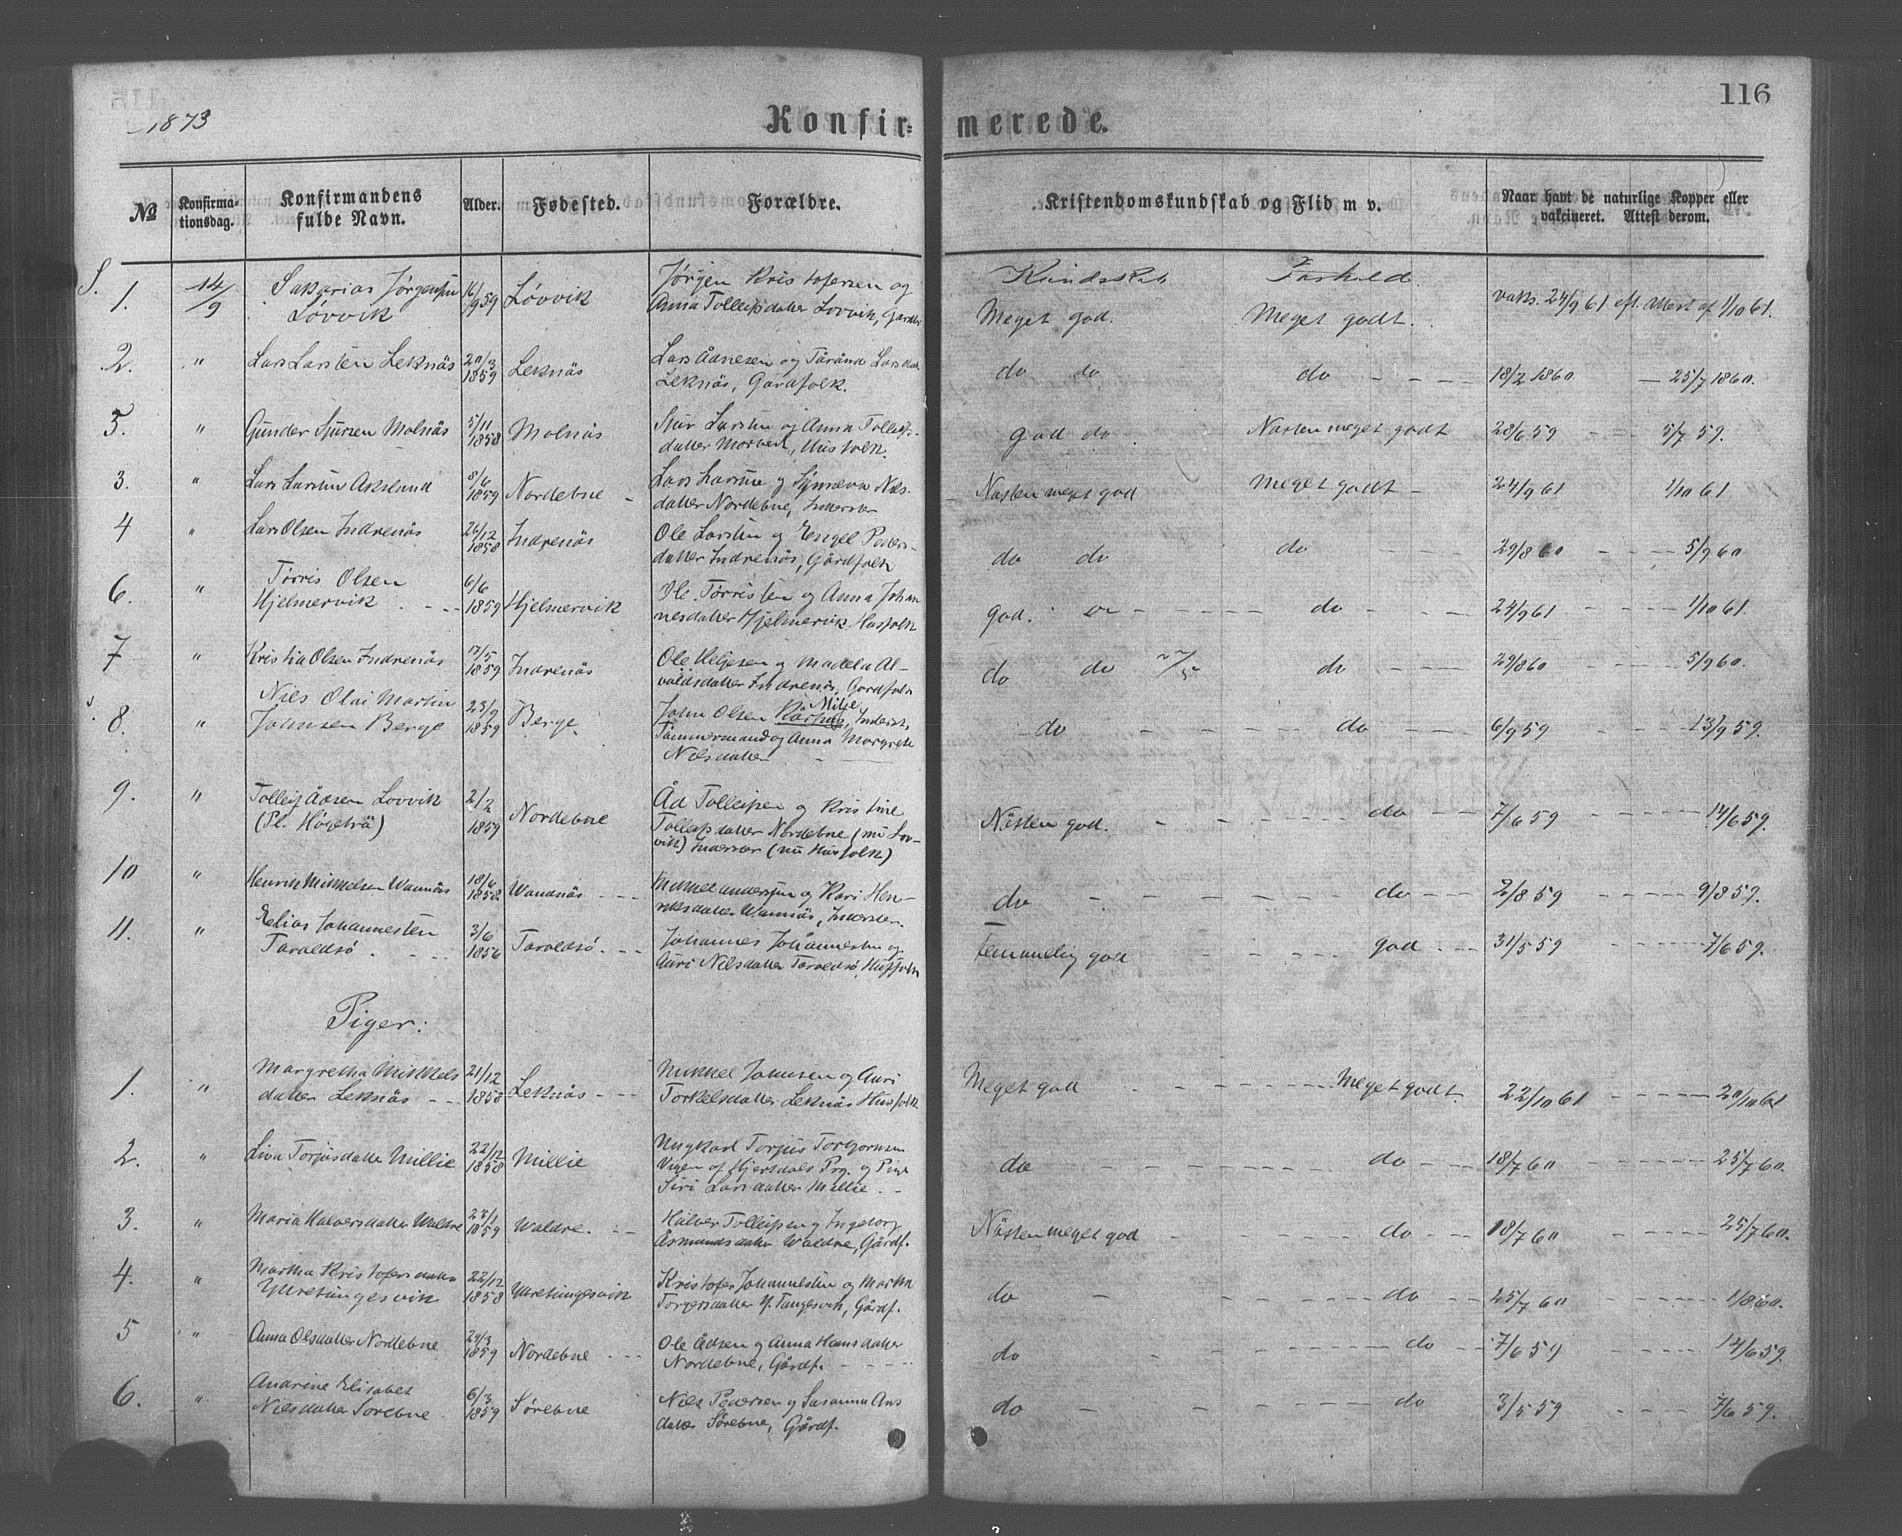 116
1873
Konfir-
merede.
№
Konfirma-
tionsdag.
Konfirmandens
fulde Navn.
Alder.
Fødested.
Forældre.
Kristendomskundskab og Flid m v.
Naar havt de naturlige Kopper eller
vakcineret. Attest derom.
S. 1. 14/9 Sakarias Jørgensen 16/9 59 Løvvik Jørgen Kristofersen og Kundskab Forhold
Løvvik Anna Tolleifsdatter Løvvik, Gardf. Meget god. Meget godt. vaks. 24/9 61 eft. Attest af 1/10 61.
2. " Lars Larsen Leknäs 20/3 1859 Leknäs Lars Ådnesen og
Leknäs, Gardfolk. do do do 18/2 1860 25/7 1860.
5. " Gunder Sjursen Molnäs 5/11 1858 Molnäs Sjur Larsen og Anna Tolleifs-
datter Husfolk. god do Nästen meget godt 28/6 59 5/7 59.
3. " Lars Larsen 8/6 1859 Nordebne Lars Larsen og Nils-
datter Nordebne, Inderster Nästen meget god Meget godt 24/9 61 1/10 61
4 " Lars Olsen Indrenäs 26/12 1858 Indrenäs Ole Larsen og Engel Peders-
datter Indrenäs, Gårdfolk do do do 29/8 60 5/9 60
6. " Tørris Olsen 6/6
Hjelmervik 1859 Hjelmervik Ole Tørrisen og Anna Johan
nesdatter Hjelmervik Husfolk god. do 24/9 61 1/10 61.
7 " Kristia Olsen Indrenäs 12/5 1859 Indrenäs Ole Heljesen og Madela Al-
valdsdatter Indrenäs, Gardfolk do do do 29/8 60 5/9 60.
S. 8. " Nils Olai Martin 23/9
Johnsen Berge 1859 Berge John Olsen Milje, Inderst,
Tømmermand og Anna Margrete
Nilsdatter do do 6/9 59 13/9 59.
9. " Tolleif Ådsen Løvvik 2/2
(Pl. Høgeträ) 1859 Nordebne Åd Tolleifsen og Kristine
Tolleifsdatter Nordebne (nu Løv-
vik) Inderster (nu Husfolk) Nästen god. do 7/6 59 14/6 59.
10 " Henrik Mikkelsen Wannäs 18/6 1858 Wandnäs Mikkel Andersen og Kari Hen-
riksdatter Wannäs, Inderster. do do 2/8 59 9/8 59.
11. " Elias Johannessen 3/6
Taraldsø 1856 Taraldsø Johannes Johannessen og
Auri Nilsdatter Taraldsø, Husfolk Temmelig god god 31/5 59 7/6 59.
Piger:
1. " Margretha Mikkels 21/12
datter Leknäs 1858 Leknäs Mikkel Johnsen og Auri
Torkelsdatter Leknäs Husfolk Meget god Meget godt. 22/10 61 20/10 61
2. " Liva Torjusdatter Millie 22/12 1858 Millie Ungkarl Torjus Torgersen
af Hjersdals Prg. og Pige
Siri Larsdatter Millie. do do 18/7 60 25/7 60.
3. " Maria Halversdatter Waldre 23/1 1859 Waldre. Halver Tolleifsen og Ingeborg
Åsmundsdatter Waldre, Gårdf. Nästen meget god do 18/7 60 25/7 60.
4. " Martha Kristofersdatter 22/12
Ytretungesvik 1858 Ytretungesvik Kristofer Johannessen og Martha
Torgersdatter Y. Tungesvik, Gårdf. do do 25/7 60 1/8 60.
5 " Anna Olsdatter Nordebne 24/3 1859 Nordebne Ole Ådsen og Anna Hansdatter
Nordebne, Gårdf. do do 7/6 59 14/6 59.
6. " Anarine Elisabet 6/3
Nilsdatter Sørebne 1859 Sørebne Nils Pedersen og Susanna Ans
datter Sørebne, Gårdf. do do 3/5 59 7/6 59.